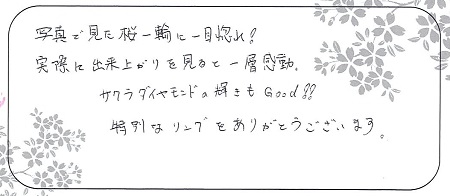 写真で見た桜一輪に一目惚れ!
実際に出来上がりを見ると一層感動。
サクラダイヤモンドの輝きもGood!!
特別なリングをありがとうございます。